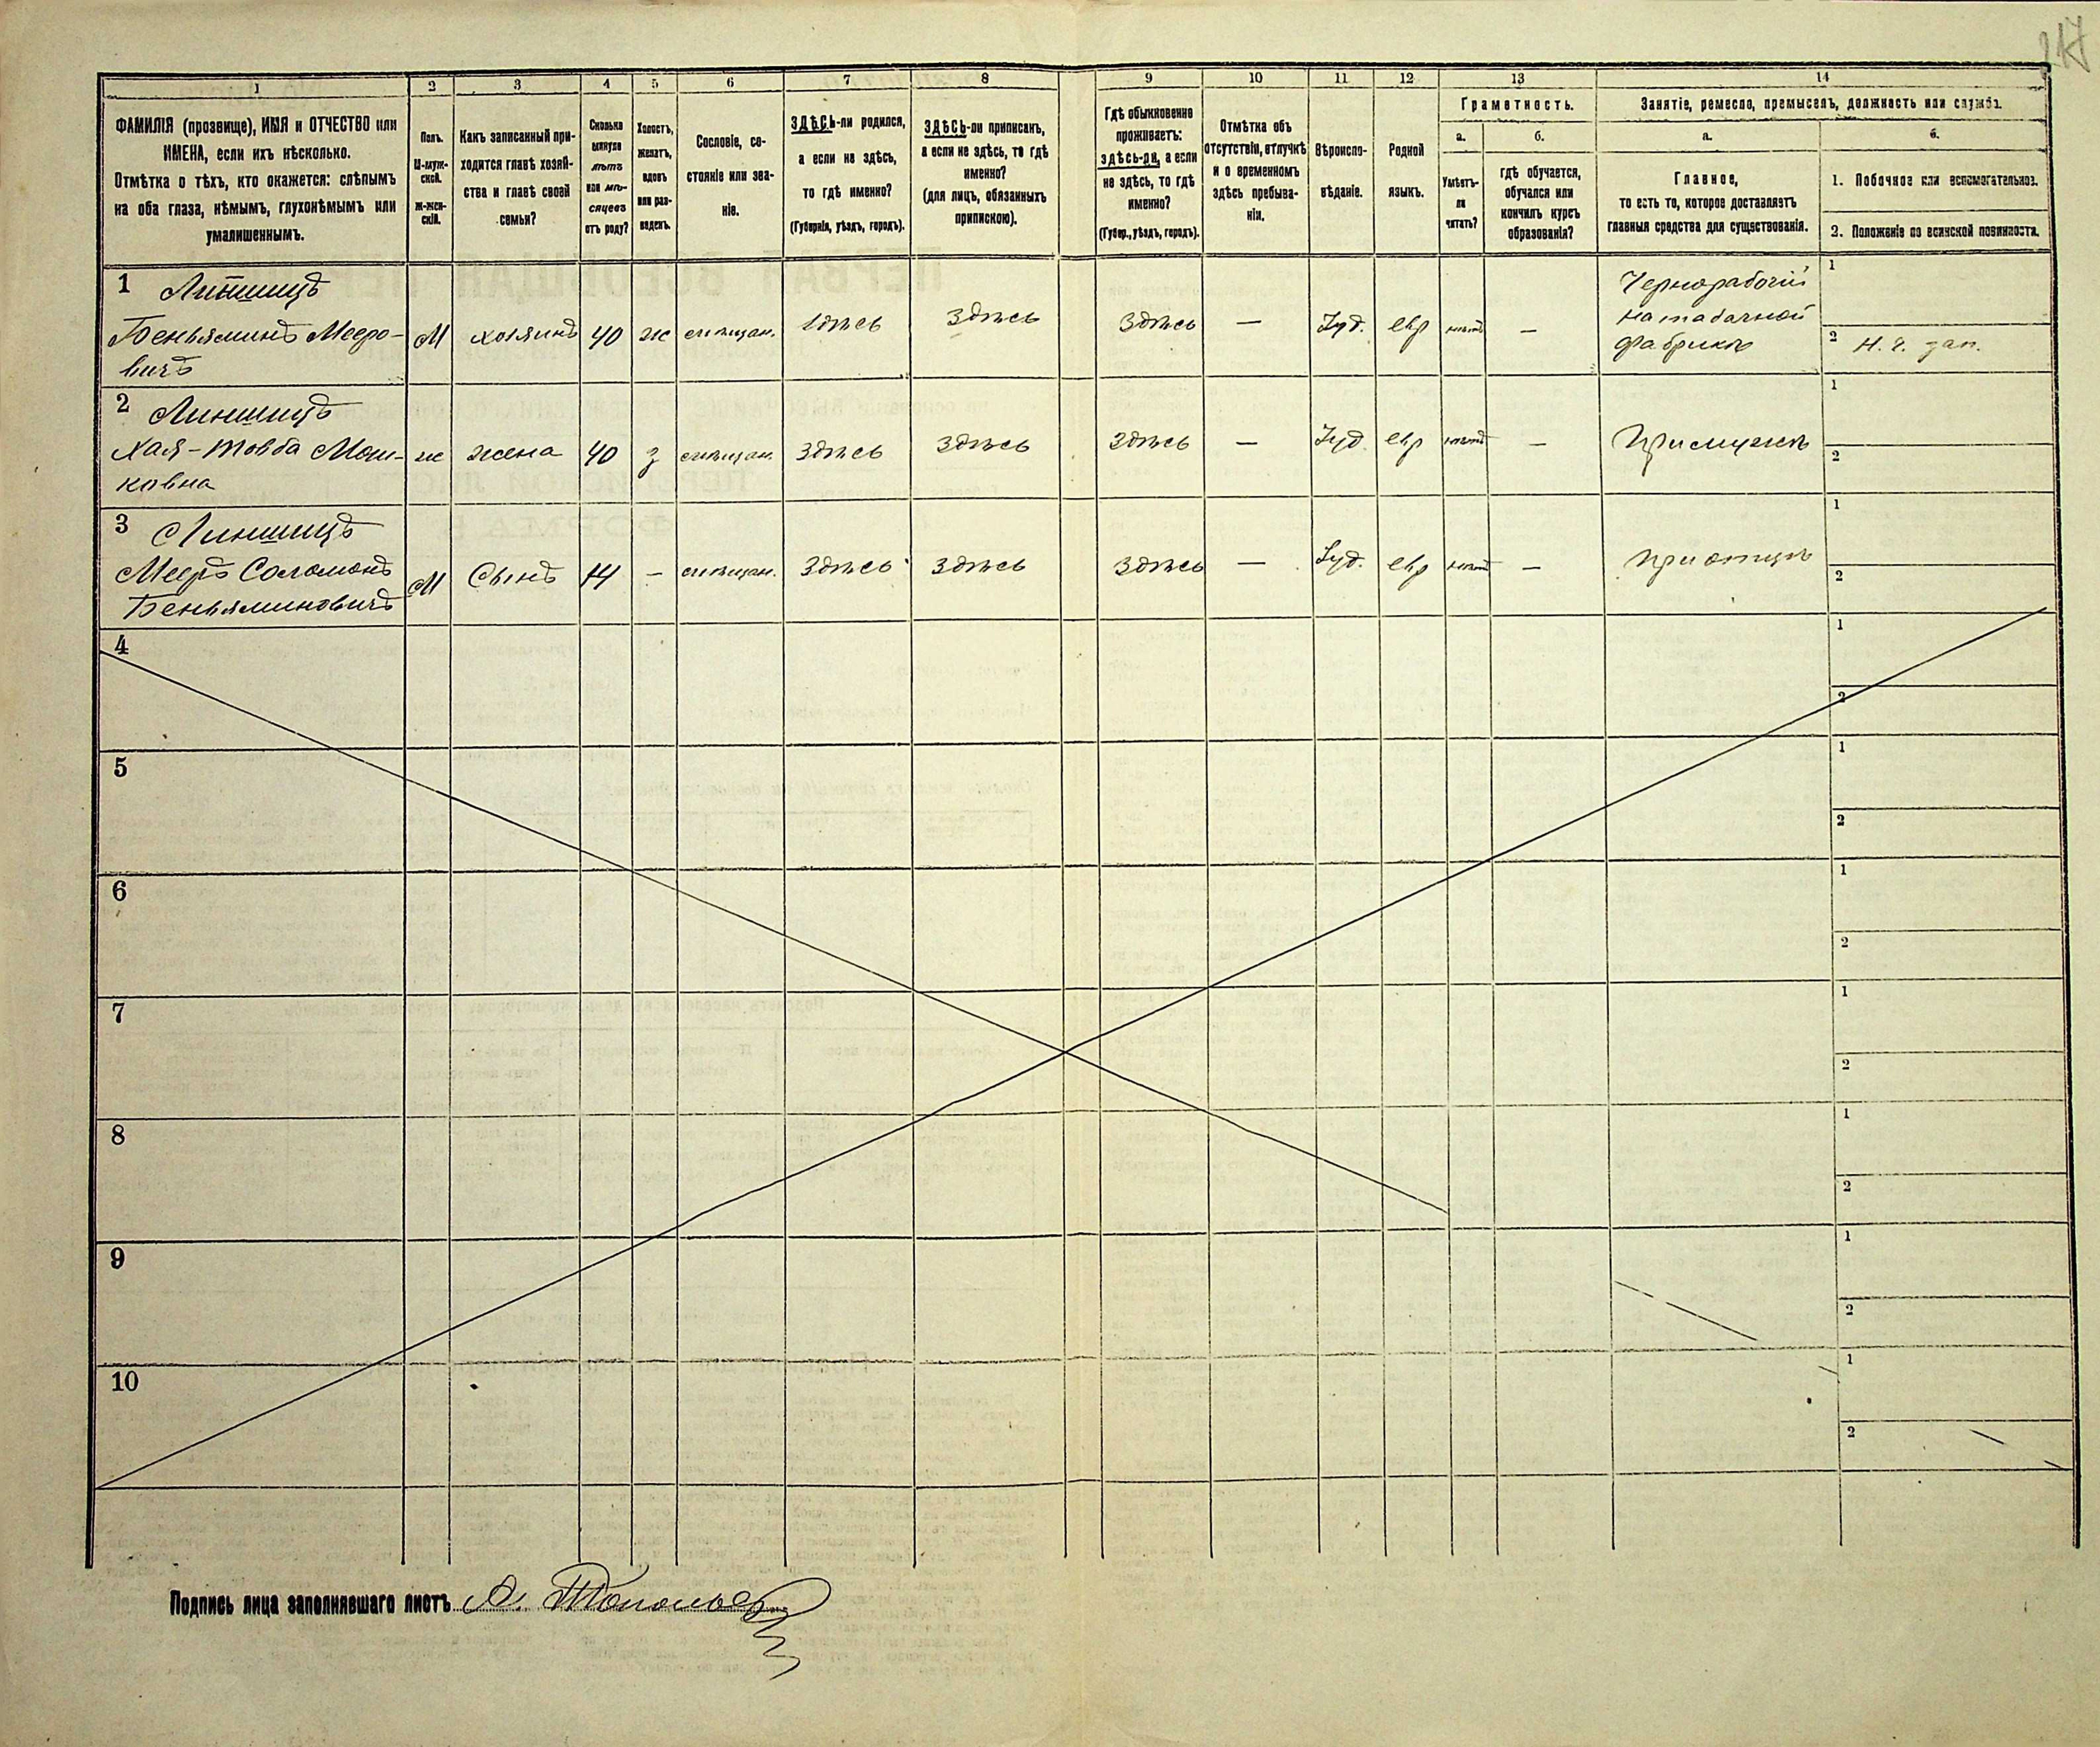 217
1 2 3 4 5 6 7 8 9 10 11 12 13 14
ФАМИЛІЯ (прозвище), ИМЯ и ОТЧЕСТВО или
ИМЕНА, если ихъ нѣсколько.
Отмѣтка о тѣхъ, кто окажется: слѣпымъ
на оба глаза, нѣмымъ, глухонѣмымъ или
умалишеннымъ.
Полъ.
М-муж-
ской.
Ж-жен-
скій.
Какъ записанный при-
ходится главѣ хозяй-
ства и главѣ своей
семьи?
Сколько
минуло
лѣтъ
или мѣ-
сяцевъ
отъ роду?
Холостъ,
женатъ,
вдовъ
или раз-
веденъ.
Сословіе, со-
стояніе или зва-
ніе.
ЗДѢСЬ-ли родился,
а если не здѣсь,
то гдѣ именно?
(Губернія, уѣздъ, городъ).
ЗДѢСЬ-ли приписанъ,
а если не здѣсь, то гдѣ
именно?
(для лицъ, обязанныхъ
припискою).
Гдѣ обыкновенно
проживаетъ:
здѣсь-ли, а если
не здѣсь, то гдѣ
именно?
(Губер., уѣздъ, городъ).
Отмѣтка объ
отсутствіи, отлучкѣ
и о временномъ
здѣсь пребыва-
ніи.
Вѣроиспо-
вѣданіе.
Родной
языкъ.
Грамотность.
а. б.
Умѣетъ-
ли
читать?
гдѣ обучается,
обучался или
кончилъ курсъ
образованія?
Занятіе, ремесло, промыселъ, должность или служба.
а. б.
Главное,
то есть то, которое доставляетъ
главныя средства для существованія.
1. Побочное или вспомогательное.
2. Положеніе по воинской повинности.
1 Линшицъ
Беньяминъ Мееро-
вичъ
М хозяинъ 40 ж мѣщан. здѣсь здѣсь здѣсь — Іуд. евр нѣтъ —
Чернорабочій
на табачной
фабрикѣ
1
2
2 Линшицъ
Хая-Товба Мош-
ковна
ж жена 40 з мѣщан. здѣсь здѣсь здѣсь — Іуд евр нѣтъ — При мужѣ
1
2
3 Линшицъ
Мееръ Соломонъ
Беньяминовичъ
М Сынъ 14 — мѣщан. здѣсь здѣсь здѣсь — Іуд. евр нѣтъ — При отцѣ
1
2
4 1
2
5 1
2
6 1
2
7 1
2
8 1
2
9 1
2
10 1
2
Подпись лица заполнявшаго листъ